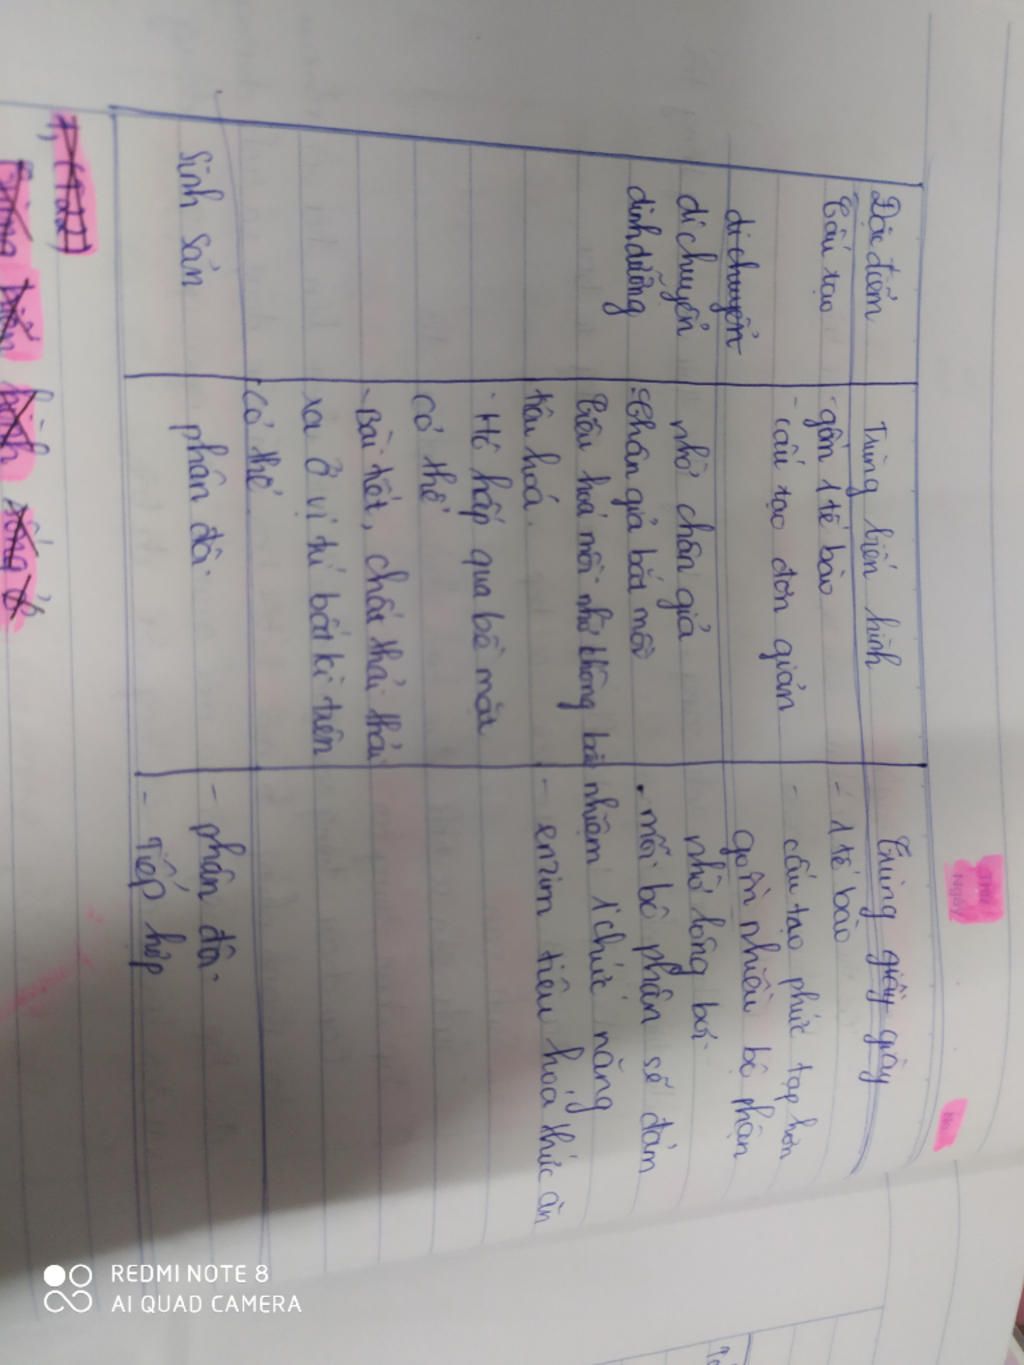 Đặc điểm
Trùng biến hình
Trùng giầy giày
Cấu tạo
- gồm 1 tế bào
- cấu tạo đơn giản
- 1 tế bào
- cấu tạo phức tạp hơn
gồm nhiều bộ phận
di chuyển
di chuyển
nhờ chân giả
nhờ lông bơi.
dinh dưỡng
- Chân giả bắt mồi
tiêu hoá mồi nhờ không bào
tiêu hoá.
- Hô hấp qua bề mặt
cơ thể
- Bài tiết, chất thải thải
ra ở vị trí bất kì trên
cơ thể.
. mỗi bộ phận sẽ đảm
nhiệm 1 chức năng
- enzim tiêu hoá thức ăn
Sinh sản
phân đôi.
- phân đôi.
- Tiếp hợp
REDMI NOTE 8
AI QUAD CAMERA